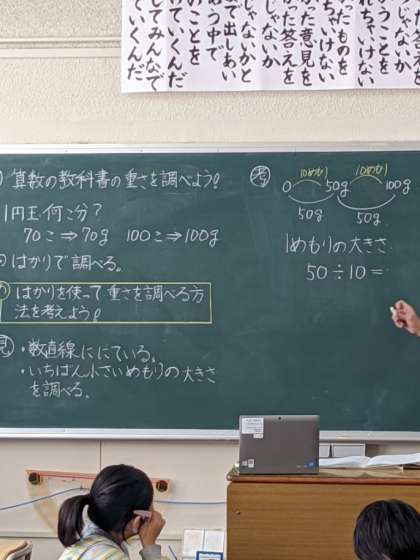 ったものを
れちゃいけない
うことを
かった意見を
じゃないか
った答えを
じゃないかと
で出しあい
う中で
のことを
けていくんだ
しみんなで
いくんだ
算数の教科書の重さを調べよう!
1円玉何こ分?
70こ⇒70g 100こ⇒100g
はかりで調べる。
はかりを使って重さを調べる方
法を考えよう!
見
・数直線ににている。
・いちばん小さいめもりの大きさ
を調べる。
考
10めもり 10めもり
0 50g 100g
50g 50g
1めもりの大きさ
50÷10=